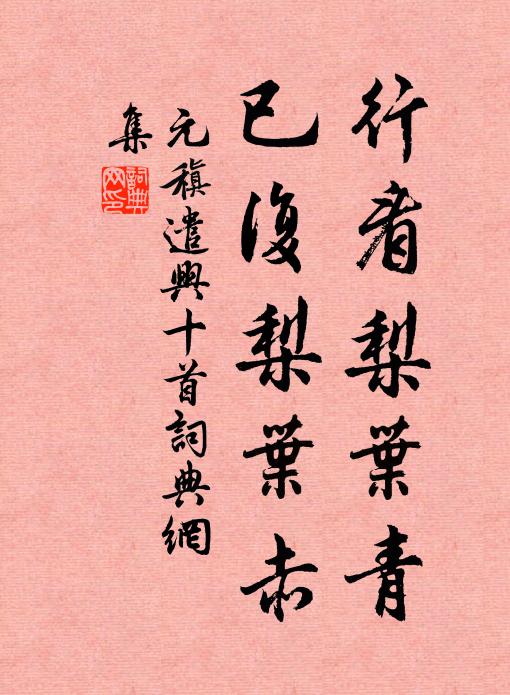 行看梨葉青
已復梨葉赤
元稹遣興十首詞典網
集
詞典網印